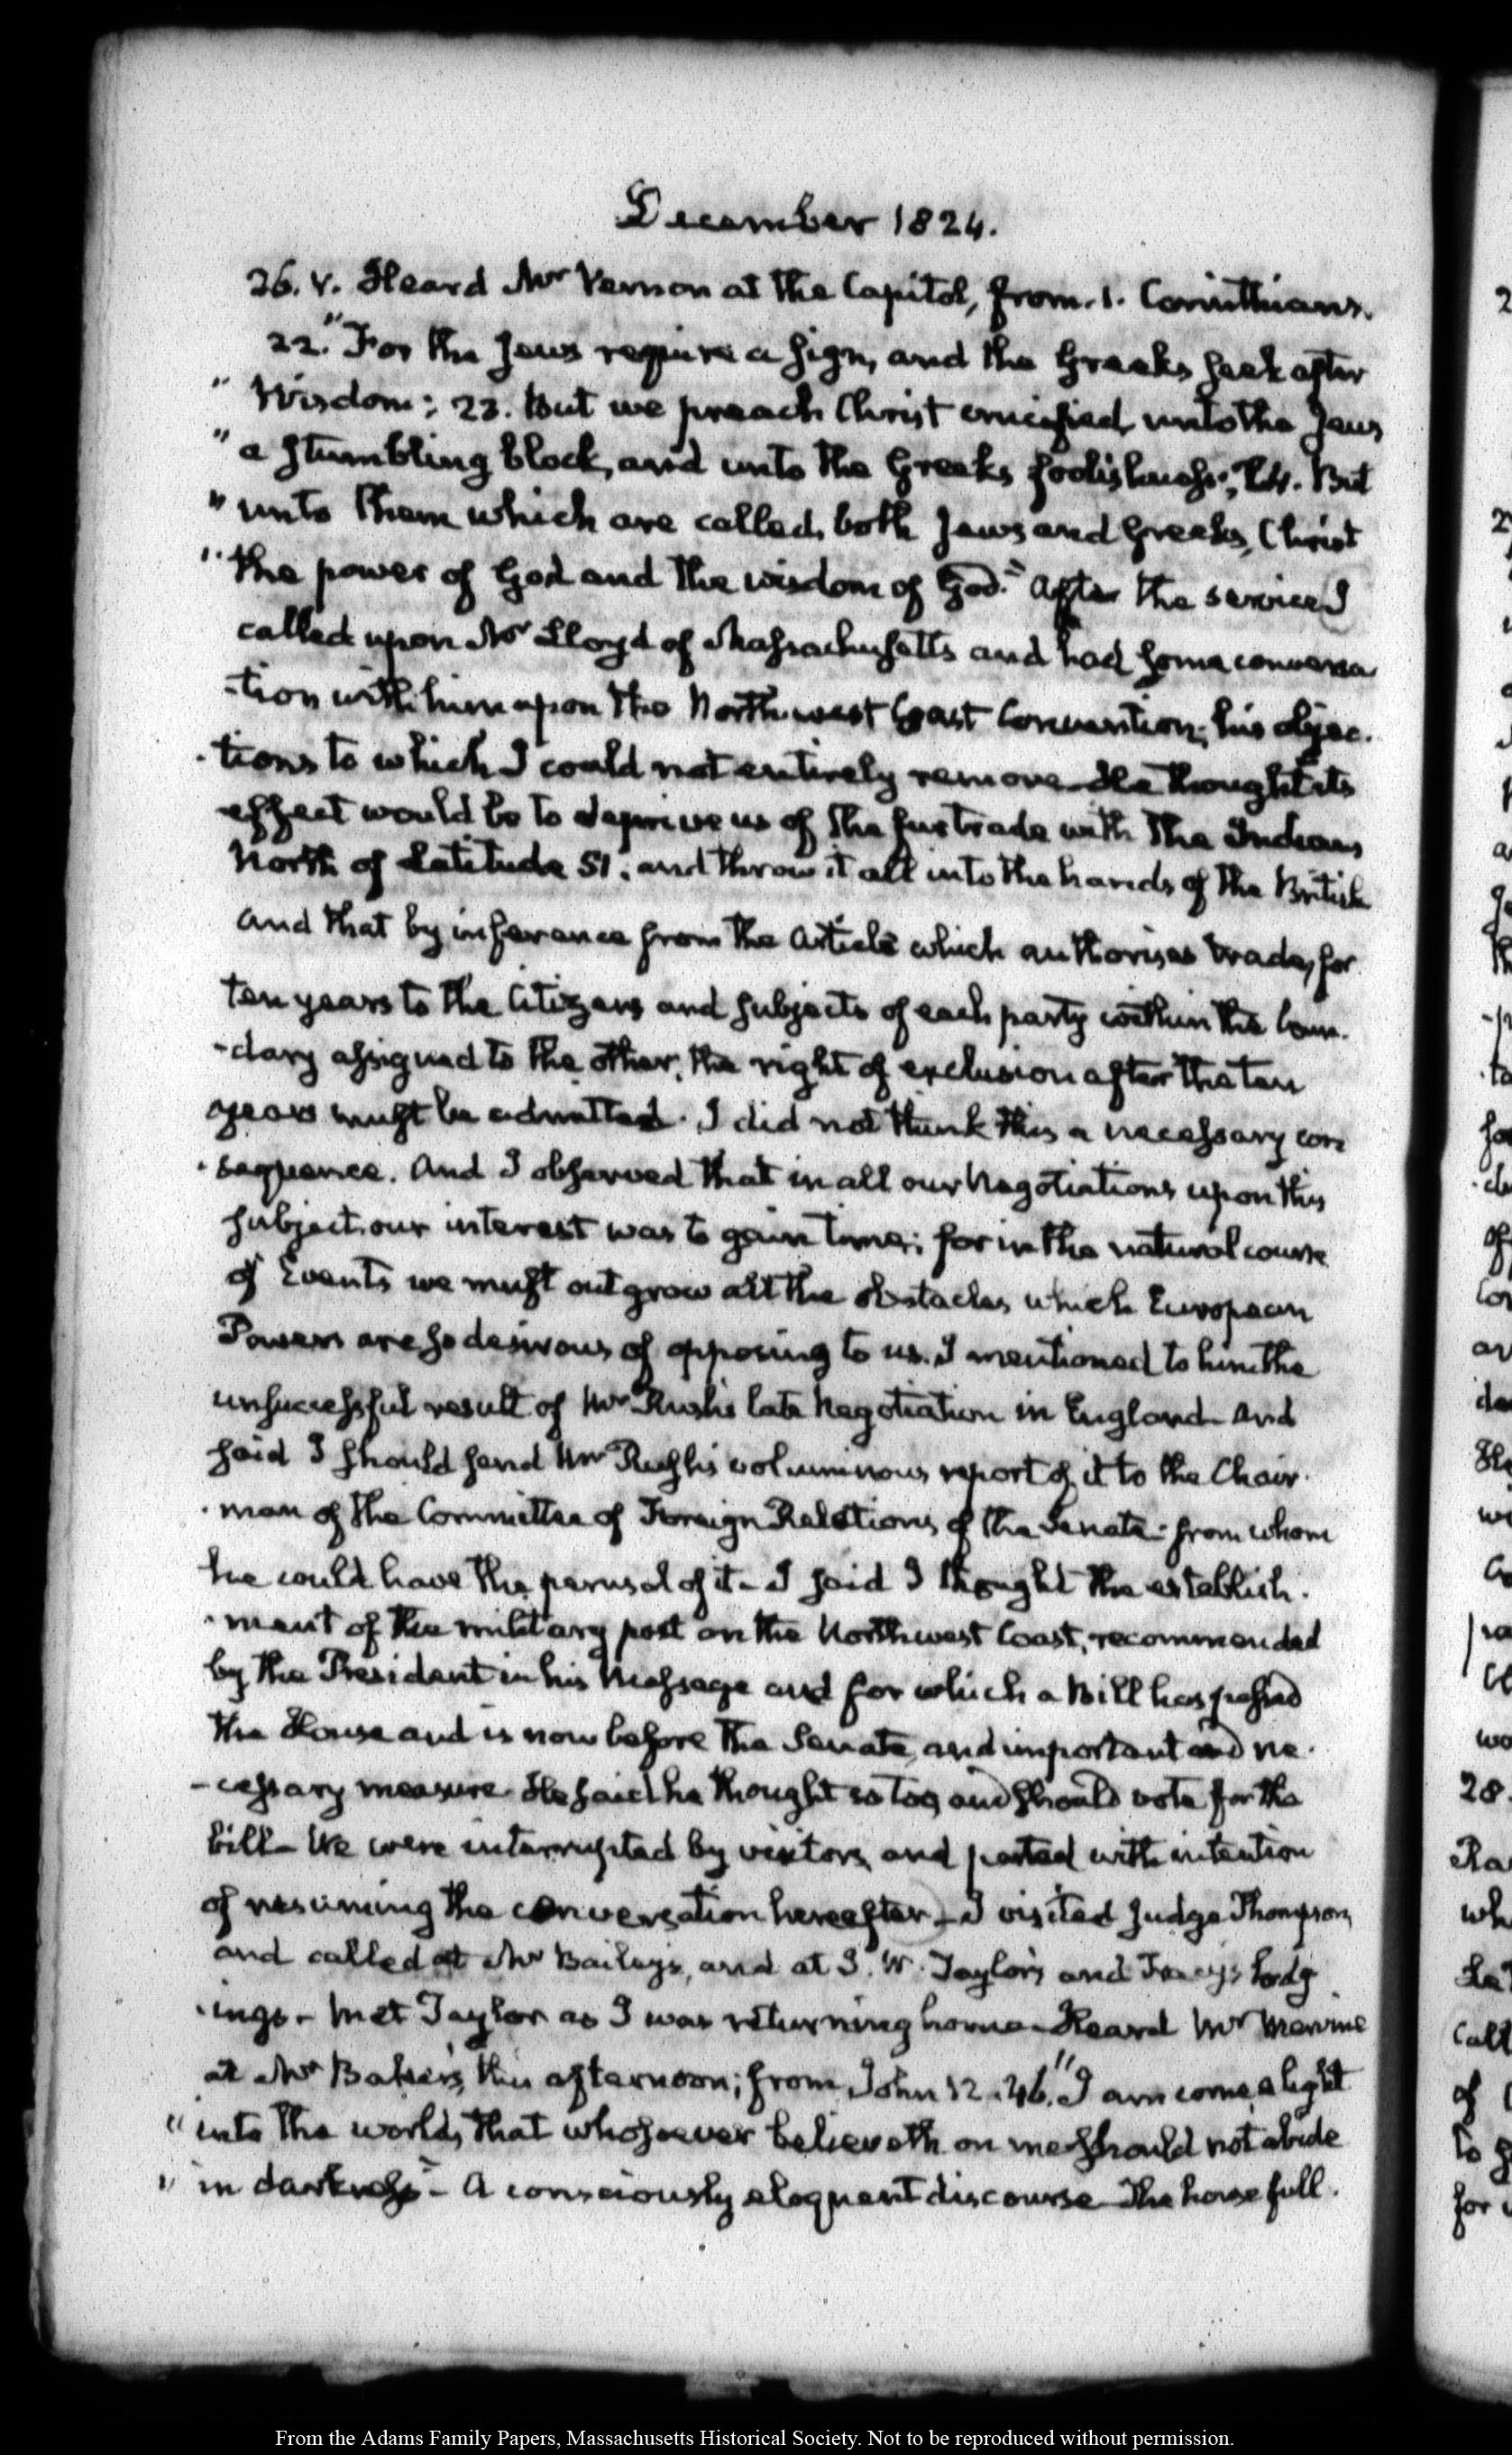 December 1824.
26. V. Heard Mr Vernon at the Capitol, from. 1. Corinthians.
22. "For the Jews require a sign, and the Greeks seek after
" Wisdom; 23. But we preach Christ crucified, unto the Jews
" a stumbling block, and unto the Greeks foolishness; 24. But
" unto them which are called, both Jews and Greeks, Christ
" the power of God and the wisdom of God." After the service I
called upon Mr Lloyd of Massachusetts and had some conversa
-tion with him upon the North-west Coast Convention; his objec-
-tions to which I could not entirely remove. He thought its
effect would be to deprive us of the fur trade with the Indians
North of Latitude 51; and throw it all into the hands of the British
and that by inference from the Article which authorises trade, for
ten years to the Citizens and subjects of each party within the boun-
-dary assigned to the other, the right of exclusion after the ten
years must be admitted. I did not think this a necessary con
-sequence. And I observed that in all our Negotiations upon this
subject, our interest was to gain time; for in the natural course
of Events we must outgrow all the obstacles which European
Powers are so desirous of opposing to us. I mentioned to him the
unsuccessful result of Mr Rush's late Negotiation in England and
said I should send Mr Rush's voluminous report of it to the Chair-
-man of the Committee of Foreign Relations of the Senate from whom
he could have the perusal of it- I said I thought the establish-
-ment of the military post on the Northwest Coast, recommended
by the President in his Message and for which a Bill has passed
the House and is now before the Senate, and important and ne-
-cessary measure. He said he thought so too, and should vote for the
bill- We were interrupted by visitors, and parted with intention
of resuming the conversation hereafter- I visited Judge Thompson,
and called at Mr Bailey's, and at J. W. Taylor's and Tracy's lodg
-ings- Met Taylor as I was returning home- Heard Mr
at Mr Baker's, this afternoon; from John 12. 46. "I am come, a light
" into the world, that whosoever believeth on me should not abide
" in darkness"- A consciously eloquent discourse- The house full.
From the Adams Family Papers, Massachusetts Historical Society. Not to be reproduced without permission.